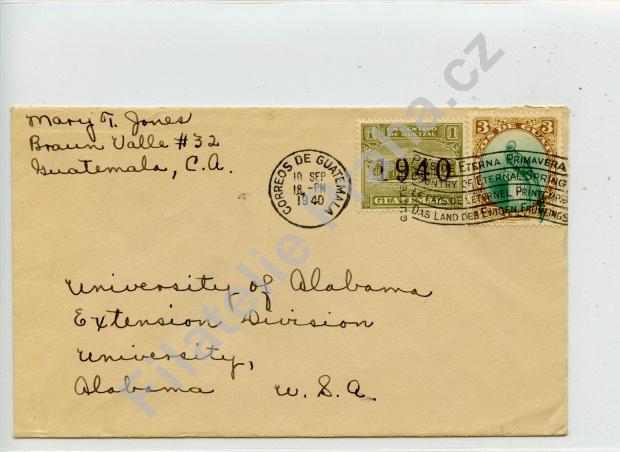 Mary T. Jones
Braun Valle #32
Guatemala, C.A.
CORREOS DE GUATEMALA
10 SEP
18 - PM
1940
1 UN CENTAVO 1
DE QUETZAL
1940
3 3
ETERNA PRIMAVERA
COUNTRY OF ETERNAL SPRING
LE PAYS DE L'ETERNEL PRINTEMPS
DAS LAND DES EWIGEN FRÜHLINGS
University of Alabama
Extension Division
University,
Alabama U.S.A.